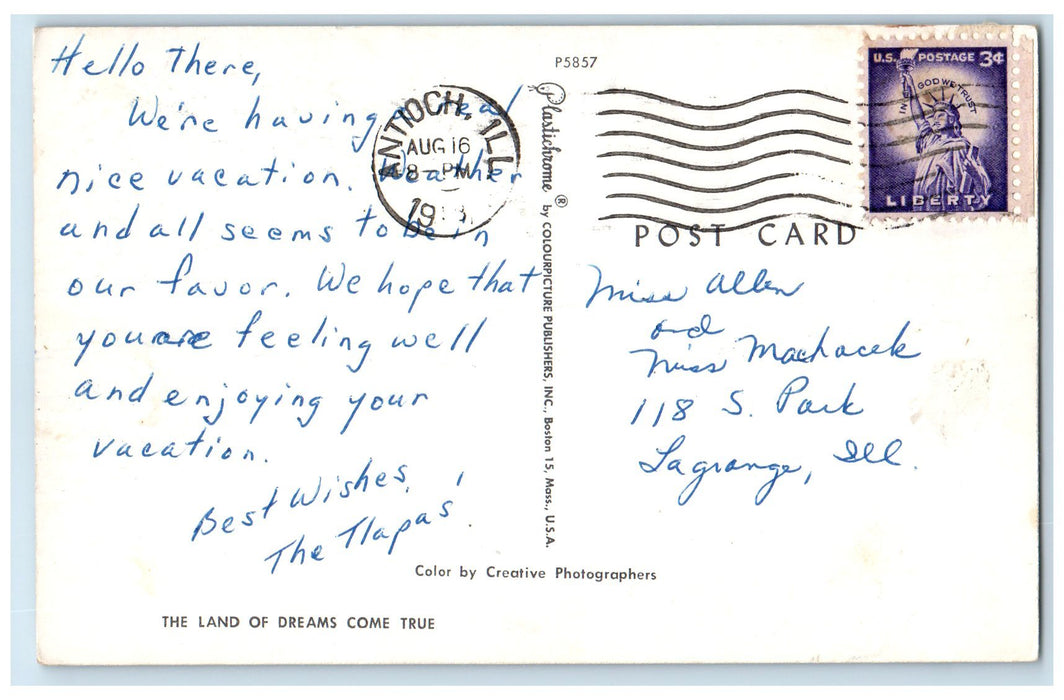 Hello There,
We're having real
nice vacation. Weather
and all seems to be in
our favor. We hope that
you are feeling well
and enjoying your
vacation.
Best Wishes,
The Tlapas'.
P5857
ANTIOCH, ILL.
AUG 16
8 - PM
19
U.S. POSTAGE 3¢
IN GOD WE TRUST
LIBERTY
Plastichrome ® by COLOURPICTURE PUBLISHERS, INC., Boston 15, Mass., U.S.A.
POST CARD
Miss Allen
and
Miss Machacek
118 S. Park
Lagrange, Ill.
Color by Creative Photographers
THE LAND OF DREAMS COME TRUE